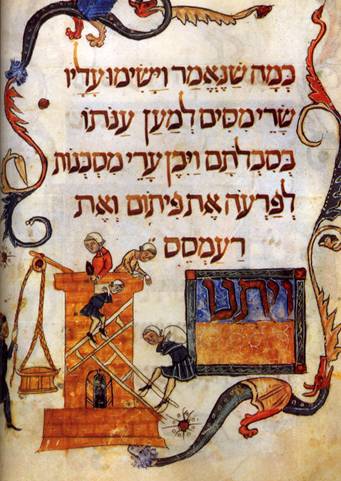 כְּמָה שֶׁנֶּאֱמַר וַיָּשִׂימוּ עָלָיו
שָׂרֵי מִסִּים לְמַעַן עַנֹּתוֹ
בְּסִבְלֹתָם וַיִּבֶן עָרֵי מִסְכְּנוֹת
לְפַרְעֹה אֶת פִּיתוֹם וְאֶת
רַעַמְסֵס
ויתנו